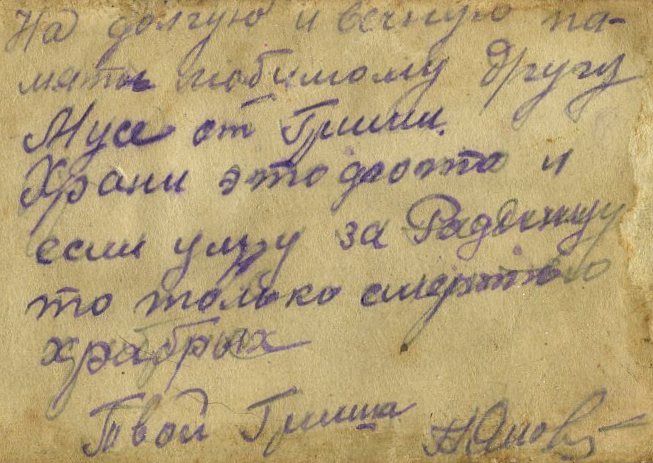 На долгую и вечную па-
мять любимому другу
Мусе от Гриши.
Храни это фото и
если умру за Радвинцу
то только смертью
храбрых
Твой Гриша